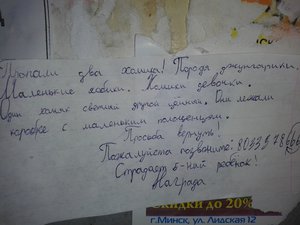 Пропали два хомяка! Порода джунгарики.
Маленькие хомики. Хомики девочки.
Один хомяк светлый другой цемный. Они лежали
коробке с маленьким полоценцам.
Просьба вернуть!
Пожалуйста позвоните: 8033
Страдает 5-ний ребенок!
Награда
Скидки до 20%
г.Минск, ул. Лидская 12